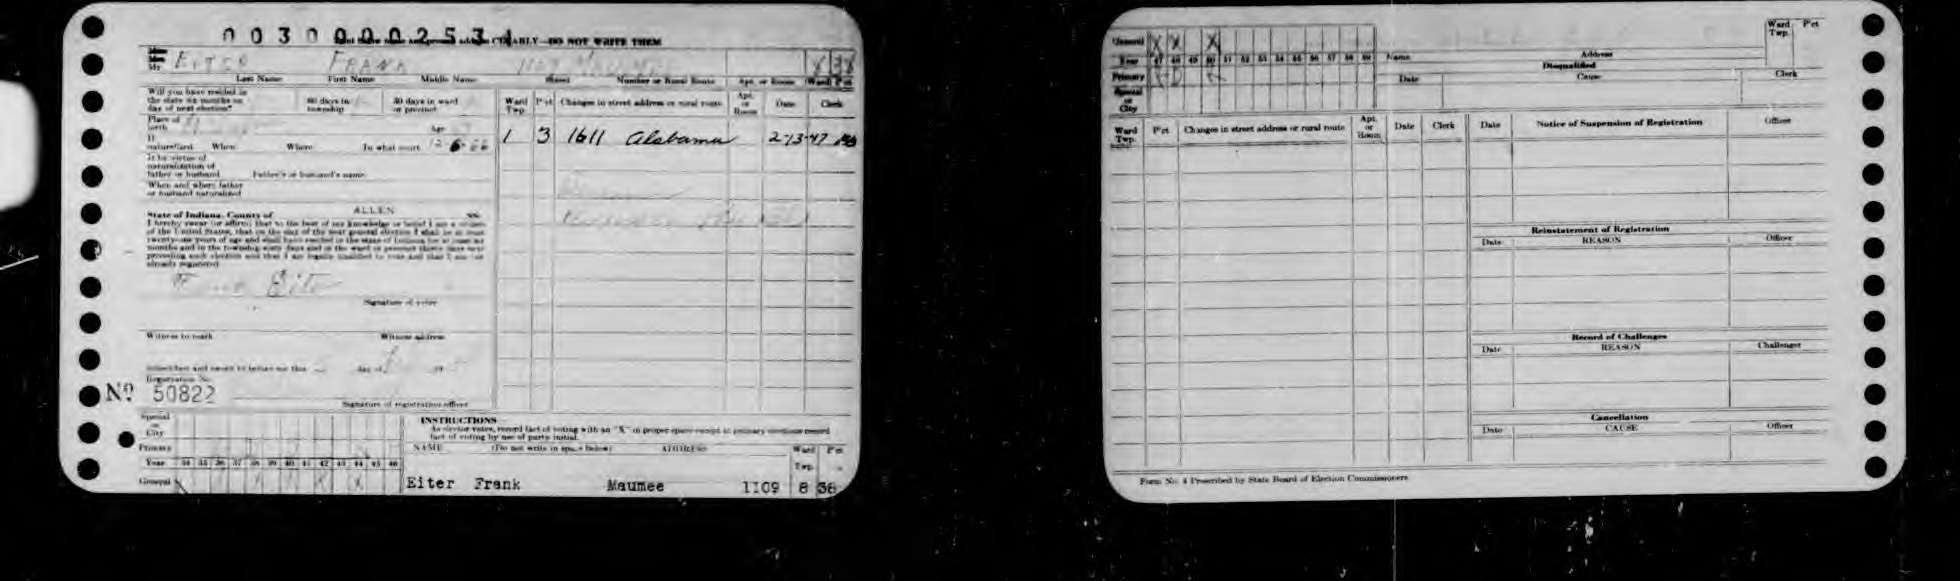 0030000253
CLEARLY—DO NOT WRITE THEM
Mr. EITER FRANK 1109 MAUMEE 8 38
Last Name First Name Middle Name Street Number or Rural Route Apt. or Room Ward Pct
Will you have resided in the state six months on day of next election? 60 days in township 30 days in ward or precinct
Ward Twp. Pct Changes in street address or rural route Apt. or Room Date Clerk
Place of birth Age
1 3 1611 Alabama 2-13-47
If naturalized. When Where In what court 12-6-66
If by virtue of naturalization of father or husband Father's or husband's name
When and where father or husband naturalized
State of Indiana, County of ALLEN ss:
I hereby swear (or affirm) that to the best of my knowledge or belief I am a citizen
of the United States, that on the day of the next general election I shall be at least
twenty-one years of age and shall have resided in the state of Indiana for at least six
months and in the township sixty days and in the ward or precinct thirty days next
preceding such election and that I am legally qualified to vote and that I am not
already registered
Frank Eiter
Signature of voter
Witness to mark Witness address
Subscribed and sworn to before me this day of 19
Registration No.
No 50822
Signature of registration officer
Special or City
Primary
Year 34 35 36 37 38 39 40 41 42 43 44 45 46
General X X X X
INSTRUCTIONS
As elector votes, record fact of voting with an "X" in proper space except in primary elections record
fact of voting by use of party initial.
NAME (Do not write in space below) ADDRESS Ward Twp. Pct
Eiter Frank Maumee 1109 8 38
General X X X
Year 47 48 49 50 51 52 53 54 55 56 57 58 59
Primary
Special or City
Name Address Ward Twp. Pct
Disqualified
Date Cause Clerk
Ward Twp. Pct Changes in street address or rural route Apt. or Room Date Clerk
Date Notice of Suspension of Registration Officer
Reinstatement of Registration
Date REASON Officer
Record of Challenges
Date REASON Challenger
Cancellation
Date CAUSE Officer
Form No. 4 Prescribed by State Board of Election Commissioners